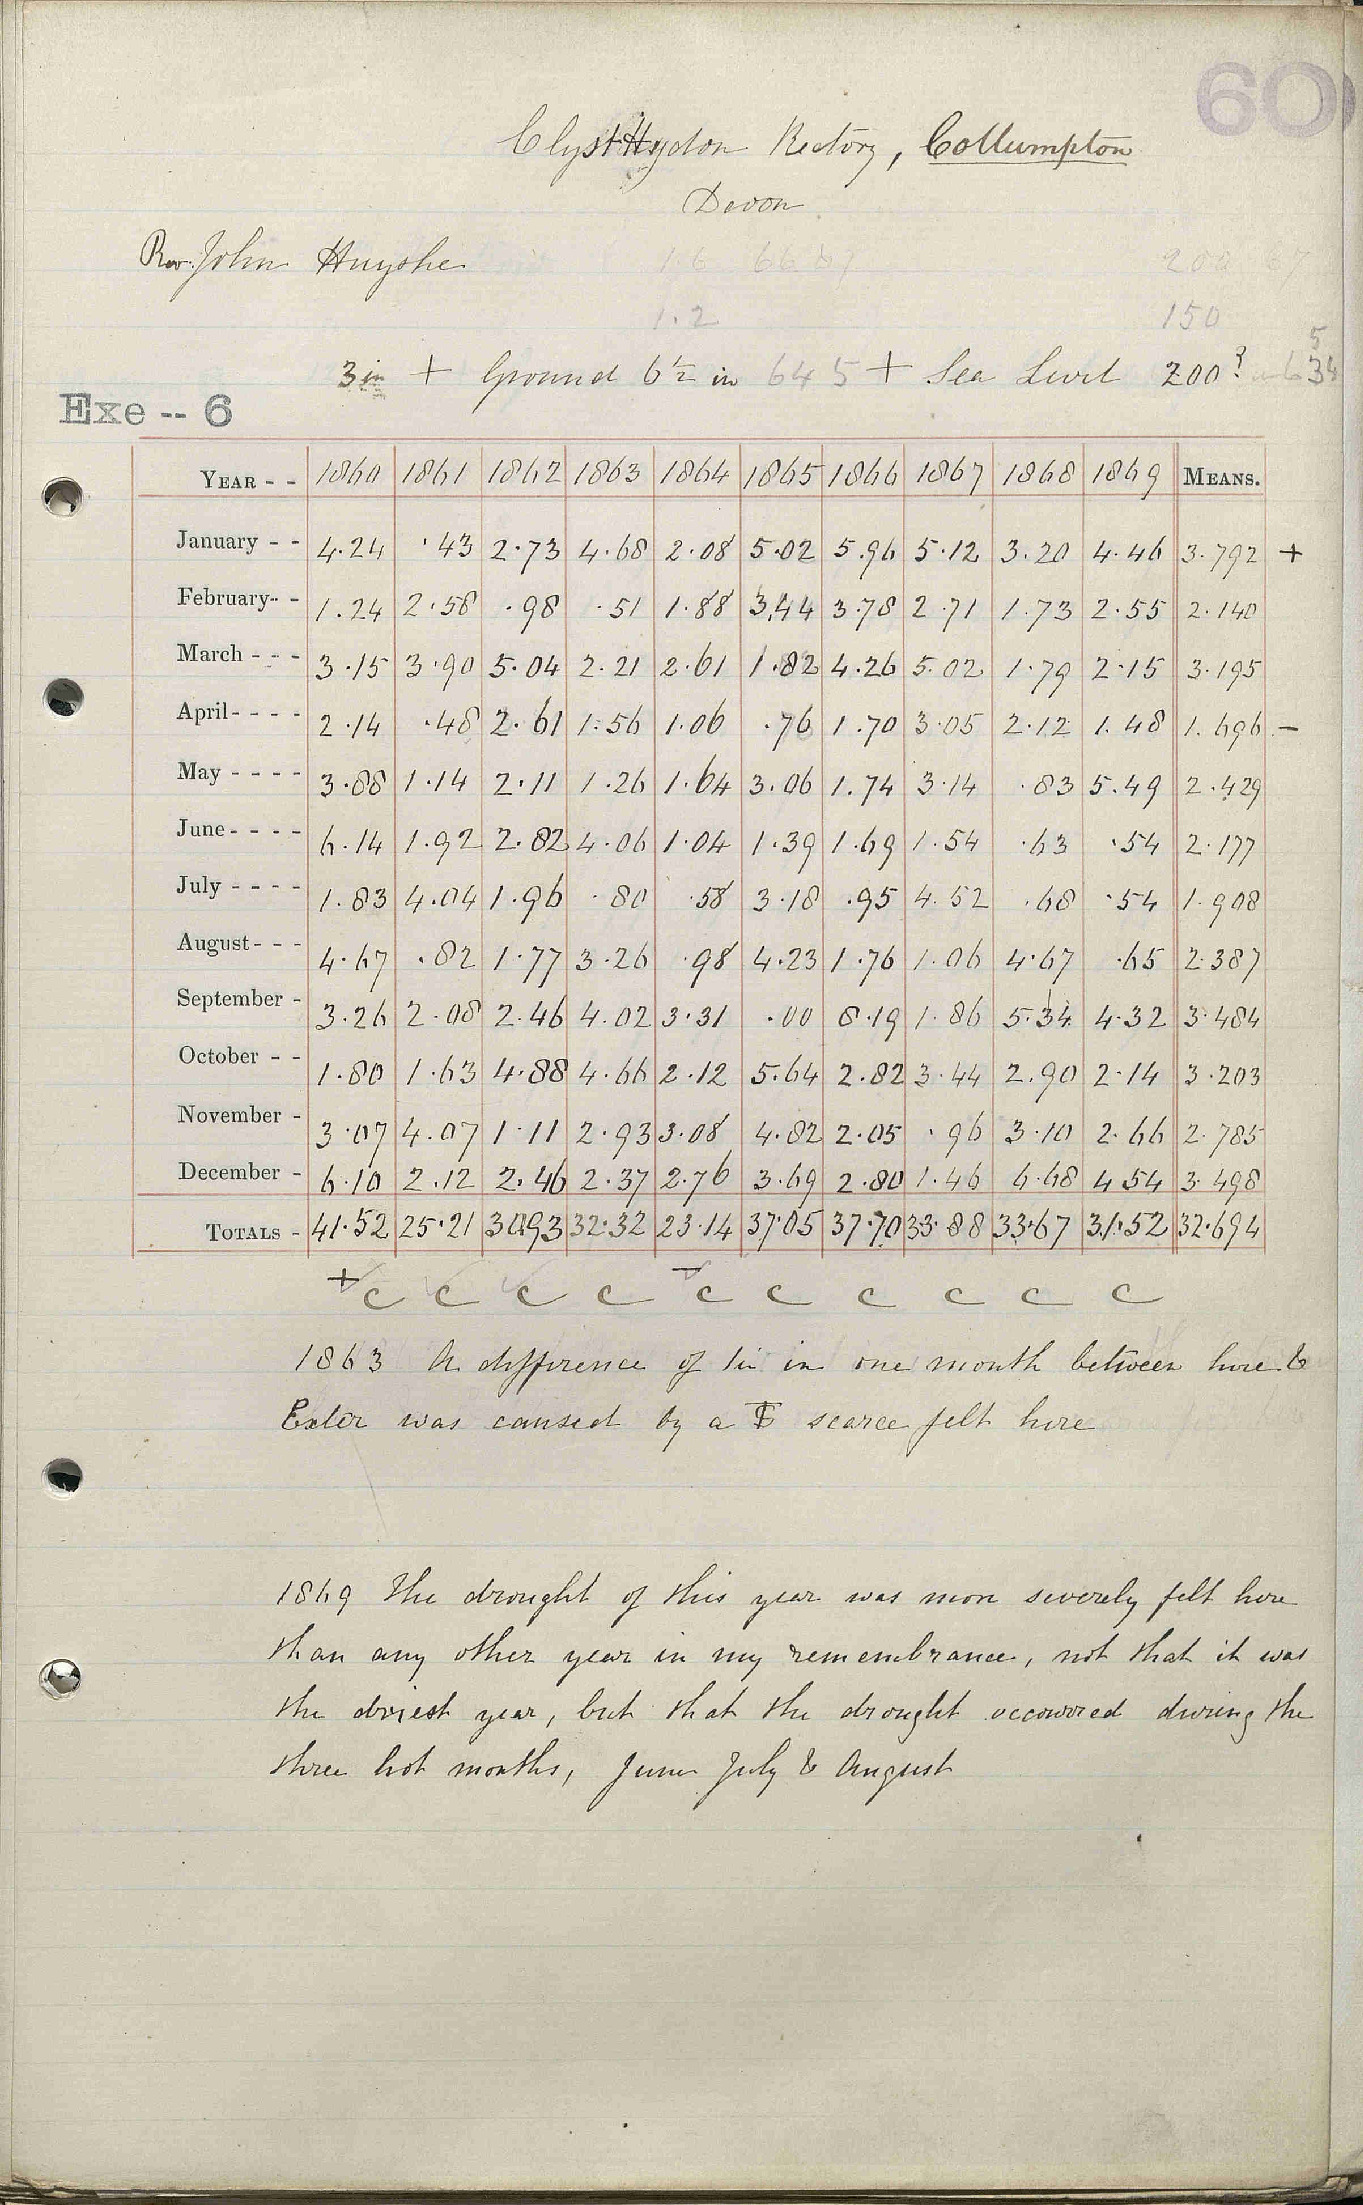 60
Clyst Hydon Rectory, Collumpton
Devon
Rev. John Huyshe
200 67
1.2 150
3 in + Ground 6½ in 64 5 + Sea Level 200?
Exe -- 6
YEAR - - 1860 1861 1862 1863 1864 1865 1866 1867 1868 1869 MEANS.
January - - 4.24 .43 2.73 4.68 2.08 5.02 5.96 5.12 3.20 4.46 3.792 +
February - - 1.24 2.58 .98 .51 1.88 3.44 3.78 2.71 1.73 2.55 2.140
March - - - 3.15 3.90 5.04 2.21 2.61 1.82 4.26 5.02 1.79 2.15 3.195
April - - - - 2.14 .48 2.61 1.56 1.06 .76 1.70 3.05 2.12 1.48 1.696 -
May - - - - 3.88 1.14 2.11 1.26 1.64 3.06 1.74 3.14 .83 5.49 2.429
June - - - - 6.14 1.92 2.82 4.06 1.04 1.39 1.69 1.54 .63 .54 2.177
July - - - - 1.83 4.04 1.96 .80 .58 3.18 .95 4.52 .68 .54 1.908
August - - - 4.67 .82 1.77 3.26 .98 4.23 1.76 1.06 4.67 .65 2.387
September - 3.26 2.08 2.46 4.02 3.31 .00 8.19 1.86 5.34 4.32 3.484
October - - 1.80 1.63 4.88 4.66 2.12 5.64 2.82 3.44 2.90 2.14 3.203
November - 3.07 4.07 1.11 2.93 3.08 4.82 2.05 .96 3.10 2.66 2.785
December - 6.10 2.12 2.46 2.37 2.76 3.69 2.80 1.46 6.68 4.54 3.498
TOTALS - 41.52 25.21 30.93 32.32 23.14 37.05 37.70 33.88 33.67 31.52 32.694
+ c c c c - c c c c c c
1863 A difference of 1 in in one month between here &
Exeter was caused by a scarce felt here
1869 The drought of this year was more severely felt here
than any other year in my remembrance, not that it was
the driest year, but that the drought occurred during the
three hot months, June July & August